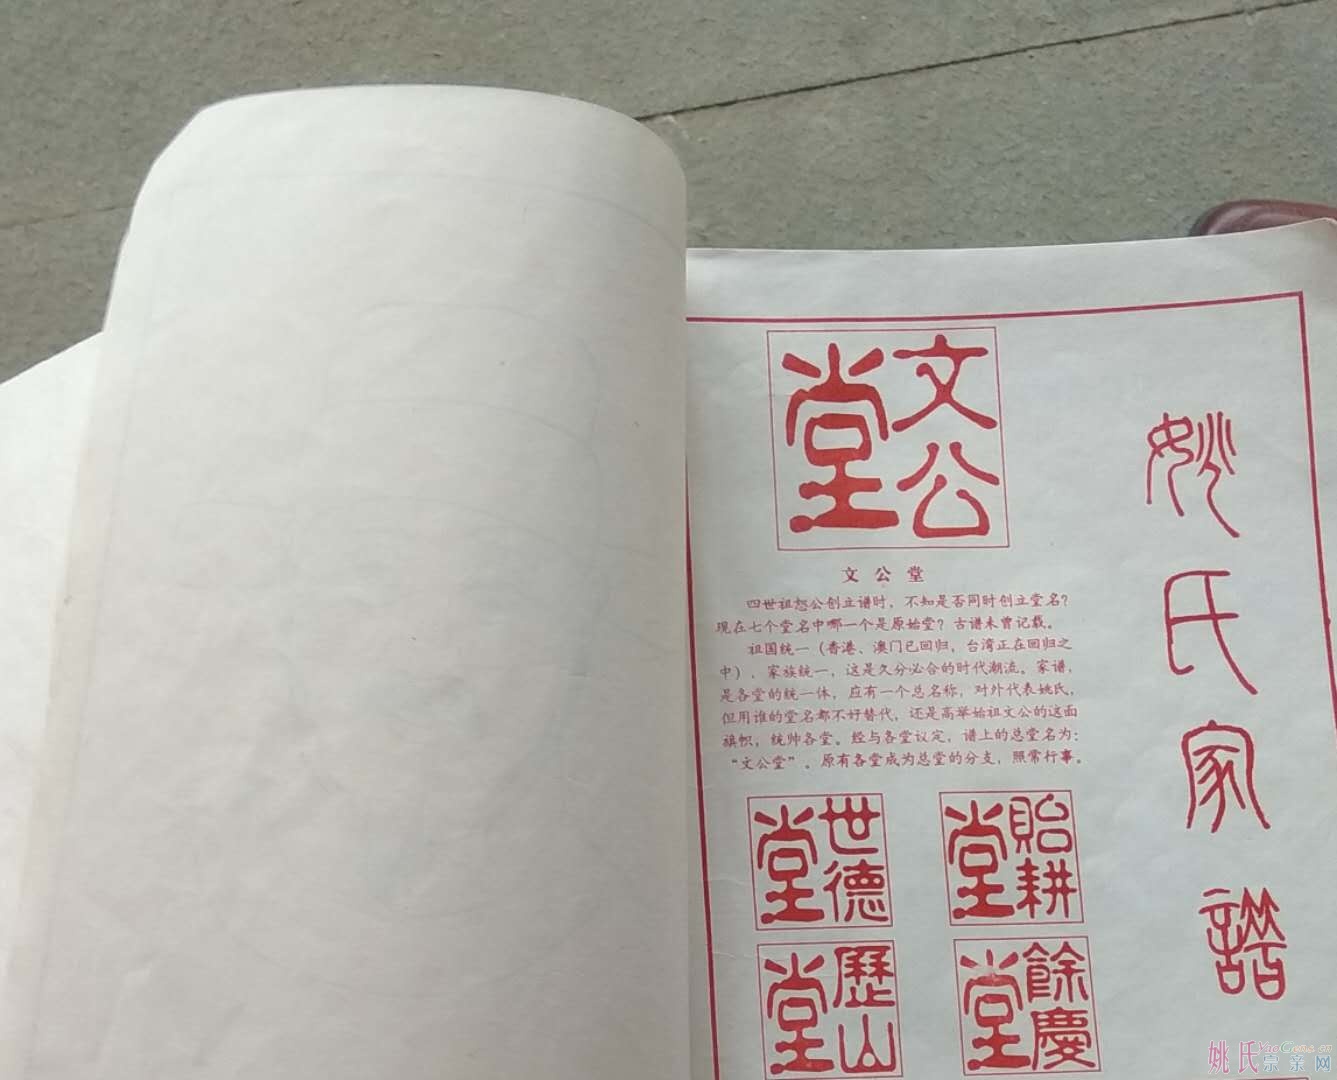 姚氏家譜
文公堂
文公堂
四世祖恕公创立谱时，不知是否同时创立堂名？
现在七个堂名中哪一个是原始堂？古谱未曾记载。
祖国统一（香港、澳门已回归，台湾正在回归之
中），家族统一，这是久分必合的时代潮流。家谱，
是各堂的统一体，应有一个总名称，对外代表姚氏，
但用谁的堂名都不好替代，还是高举始祖文公的这面
旗帜，统帅各堂。经与各堂议定，谱上的总堂名为：
“文公堂”。原有各堂成为总堂的分支，照常行事。
世德堂
貽耕堂
歷山堂
餘慶堂
姚氏宗亲网
YaoGens.cn